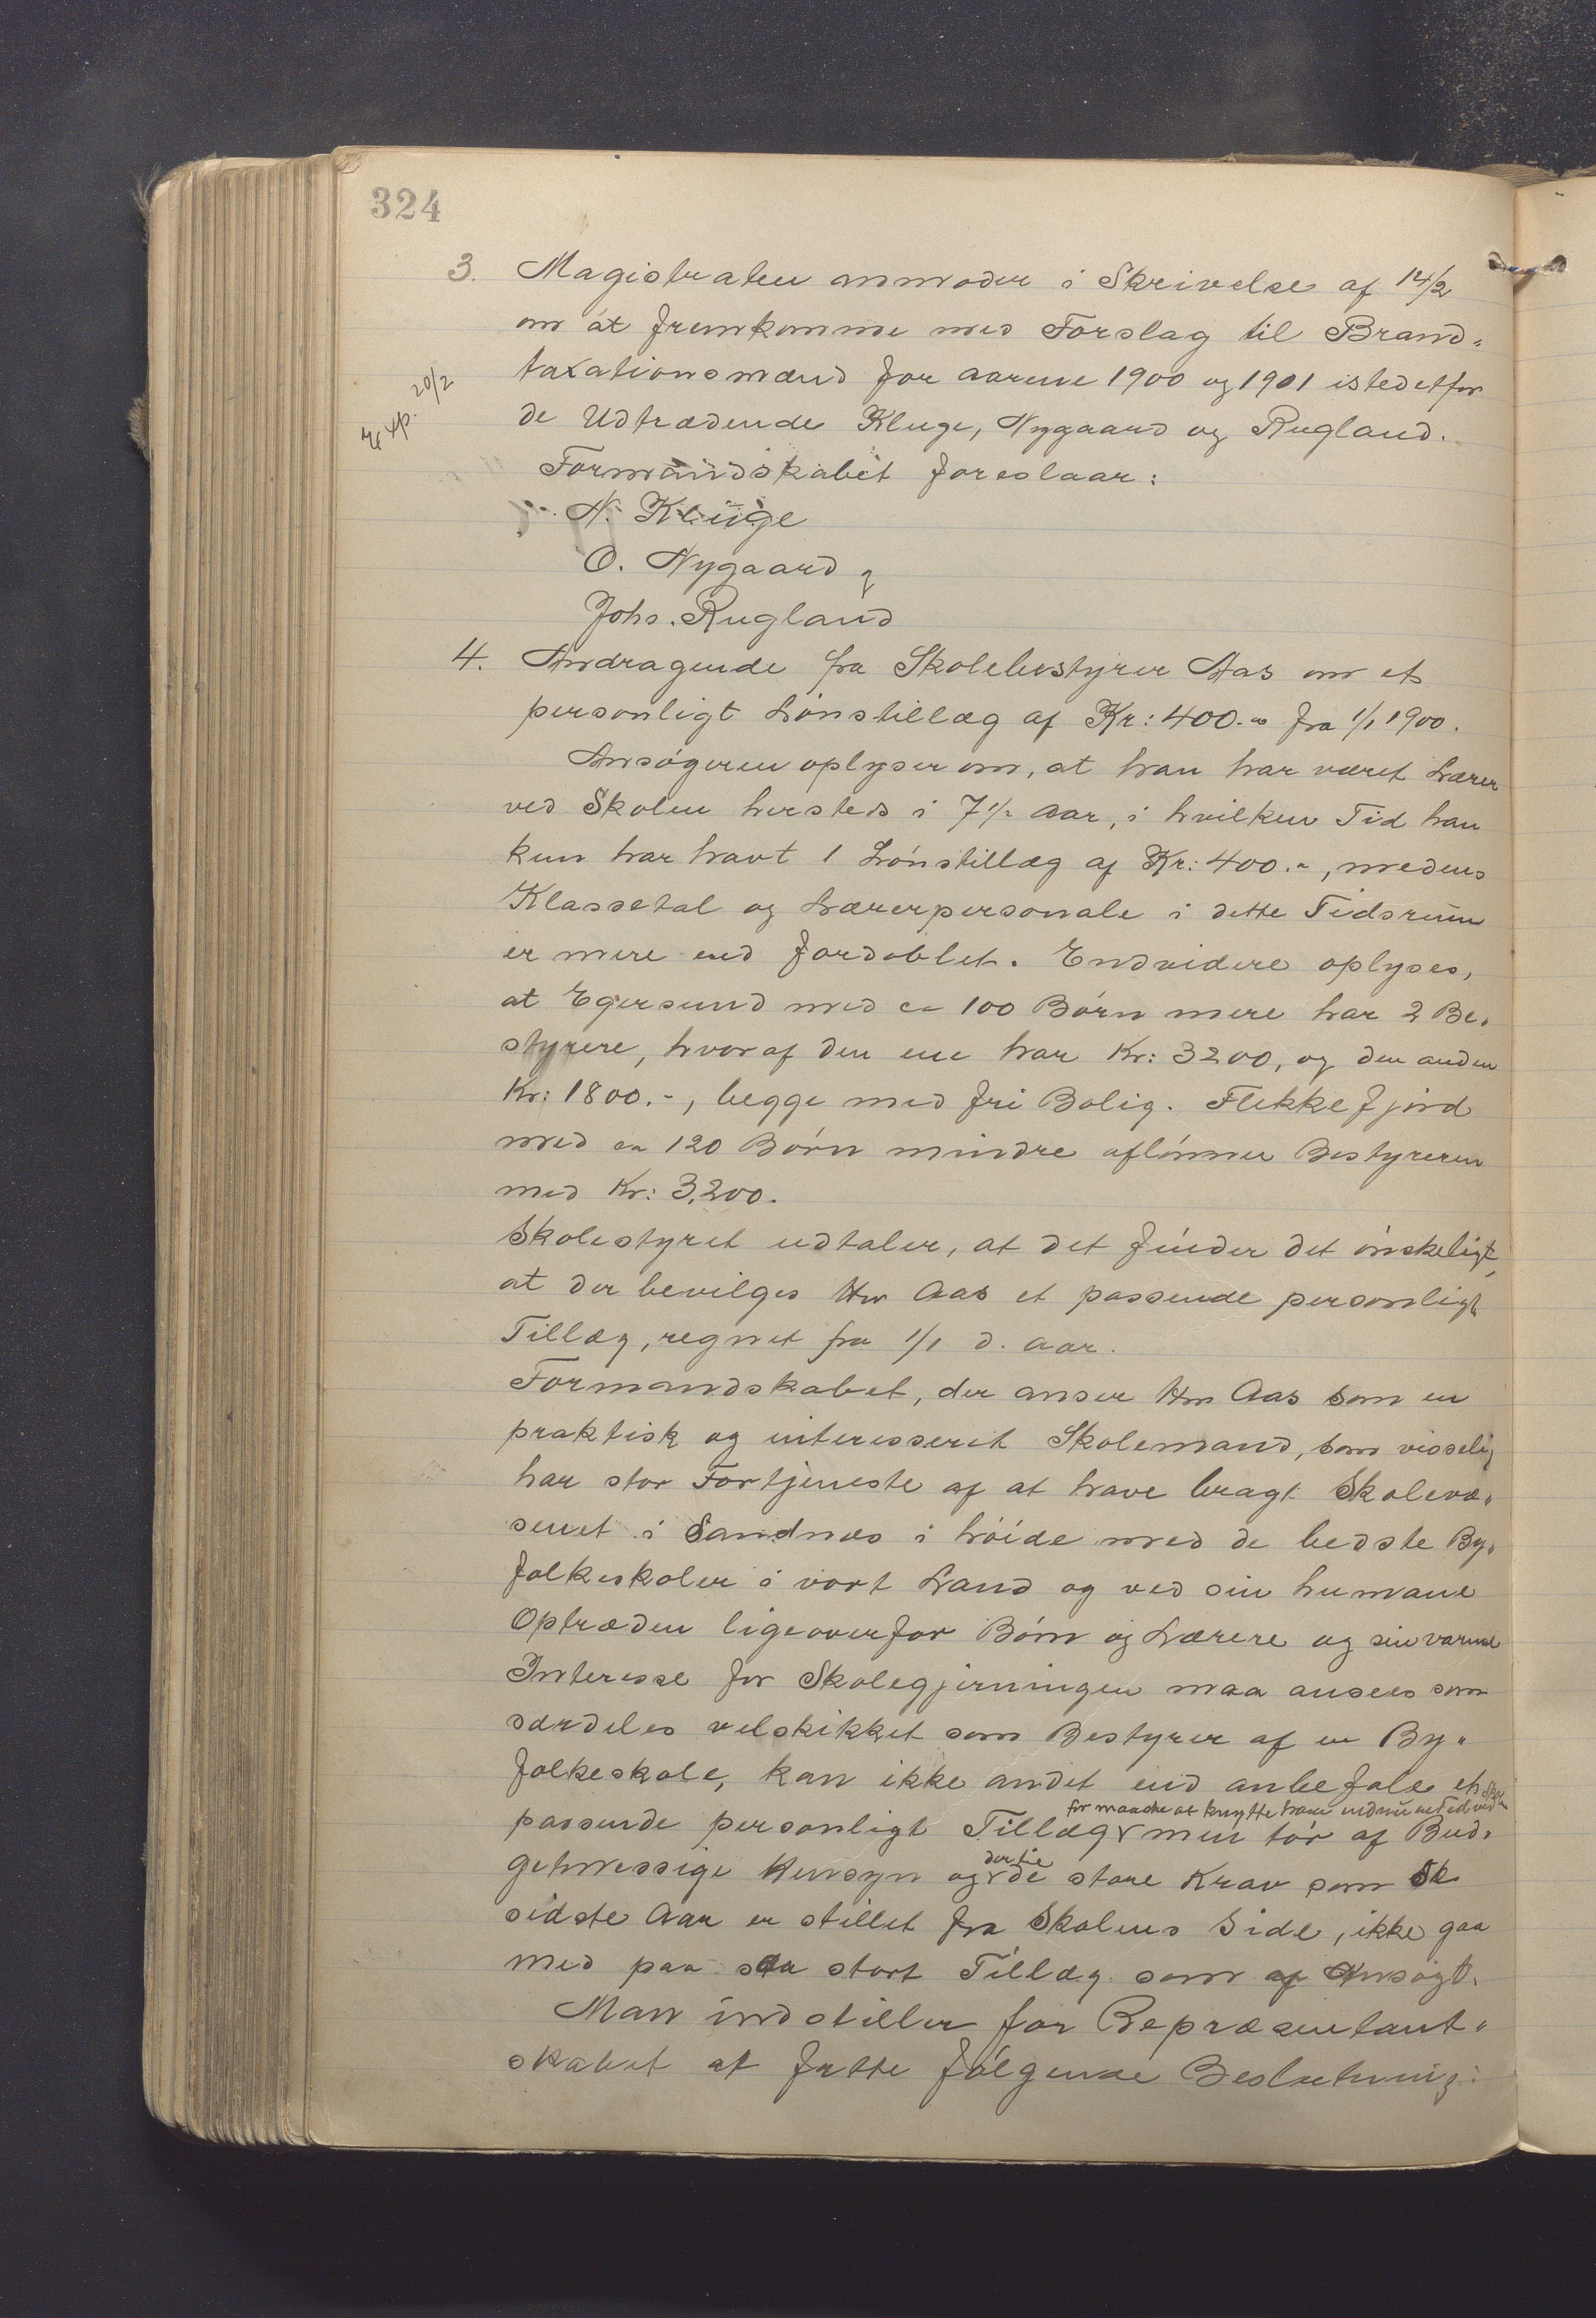 324
3. Magistraten anmoder i Skrivelse af 14/2
om at fremkomme med Forslag til Brand-
taxationsmænd for Aarene 1900 og 1901 istedetfor
Exp. 20/2
de Udtrædende Kluge, Nygaard og Rugland.
Formandskabet foreslaar:
N. Kluge
O. Nygaard og
Johs. Rugland
4. Andragende fra Skolebestyrer Aas om et
personligt Lönstillæg af Kr: 400.- fra 1/1 1900.
Ansögeren oplyser om, at han har været Lærer
ved Skolen hersteds i 7 1/2 Aar, i hvilken Tid han
kun har havt 1 Lönstillæg af Kr: 400.-, medens
Klassetal og Lærerpersonale i dette Tidsrum
er mere end fordoblet. Endvidere oplyses,
at Egersund med ca 100 Börn mere har 2 Be-
styrere, hvoraf den ene har Kr: 3200, og den anden
Kr: 1800.-, begge med fri Bolig. Flekkefjord
med ca 120 Börn mindre aflönner Bestyreren
med Kr: 3,200.
Skolestyret udtaler, at det finder det önskeligt,
at der bevilges Hr Aas et passende personligt
Tillæg, regnet fra 1/1 d. Aar.
Formandskabet, der anser Hr Aas som en
praktisk og interesseret Skolemand, som visselig
har stor Fortjeneste af at have bragt Skolevæ-
senet i Sandnæs i höide med de bedste By-
folkeskoler i vort Land og ved sin humane
Optræden ligeoverfor Börn og Lærere og sin varme
Interesse for Skolegjerningen maa ansees som
særdeles velskikket som Bestyrer af en By-
folkeskole, kan ikke andet end anbefale et
for maaske at knytte ham endnu en Tid ved Skolen
passende personligt Tillæg men tör af Bud-
dertil
getmessige Hensyn og de store Krav som
sidste Aar er stillet fra Skolens Side, ikke gaa
med paa saa stort Tillæg som af Ansögt.
Man indstiller for Repræsentant-
skabet at fatte fölgende Beslutning: